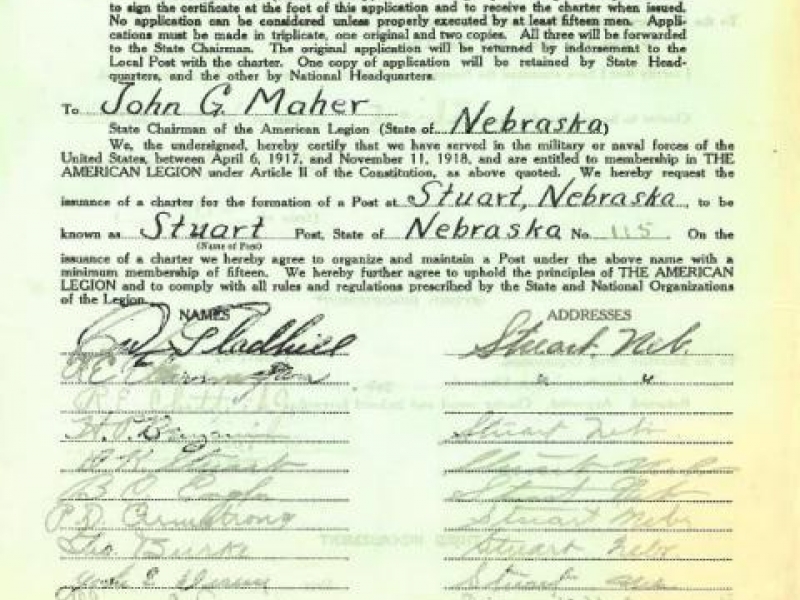 to sign the certificate at the foot of this application and to receive the charter when issued.
No application can be considered unless properly executed by at least fifteen men. Appli-
cations must be made in triplicate, one original and two copies. All three will be forwarded
to the State Chairman. The original application will be returned by indorsement to the
Local Post with the charter. One copy of application will be retained by State Head-
quarters, and the other by National Headquarters.
To John G. Maher
State Chairman of the American Legion (State of Nebraska)
We, the undersigned, hereby certify that we have served in the military or naval forces of the
United States, between April 6, 1917, and November 11, 1918, and are entitled to membership in THE
AMERICAN LEGION under Article II of the Constitution, as above quoted. We hereby request the
issuance of a charter for the formation of a Post at Stuart, Nebraska, to be
known as Stuart Post, State of Nebraska No. 115 On the
(Name of Post)
issuance of a charter we hereby agree to organize and maintain a Post under the above name with a
minimum membership of fifteen. We hereby further agree to uphold the principles of THE AMERICAN
LEGION and to comply with all rules and regulations prescribed by the State and National Organizations
of the Legion.
NAMES ADDRESSES
Gladhill Stuart, Neb.
" "
Stuart Nebr
Stuart
Stuart
P.D. Armstrong Stuart Nebr
Geo. Burke Stuart Nebr
Stuart